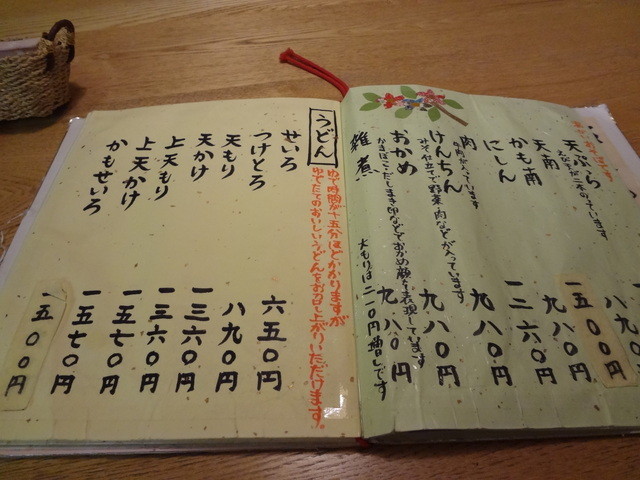 天ぷら
天南
かも南
にしん
肉
牛肉が入っています
けんちん
みそ仕立てで野菜・肉などが入っています
おかめ
かまぼこ・だしまき卵などでおかめ顔を表現しています
雑煮
大もりは二一〇円増しです
一五〇〇円
八九〇円
一三六〇円
九八〇円
九八〇円
九八〇円
うどん
ゆで時間が十五分ほどかかりますが
ゆでたてのおいしいうどんをお召し上がりいただけます。
せいろ 六五〇円
つけとろ 八九〇円
天もり 一三六〇円
天かけ 一三六〇円
上天もり 一五七〇円
上天かけ 一五七〇円
かもせいろ 一五〇〇円